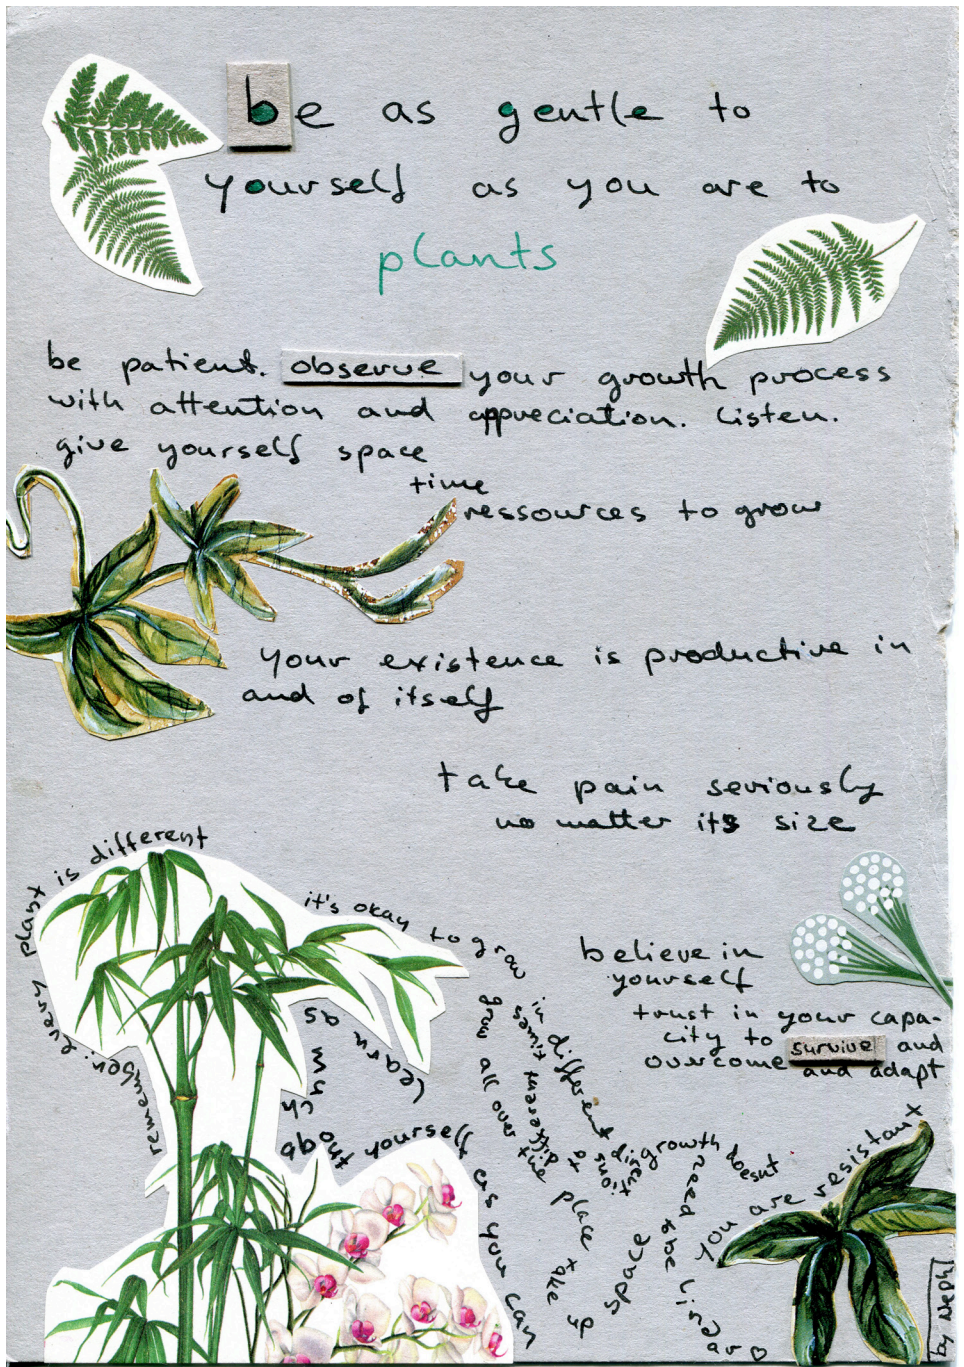 be as gentle to
yourself as you are to
plants
be patient. observe your growth process
with attention and appreciation. Listen.
give yourself space
time
ressources to grow
your existence is productive in
and of itself
take pain seriously
no matter its size
remember: every plant is different
it's okay to grow in different directions
at different times
grow all over the place take up space
learn as much about yourself as you can
growth doesnt need to be linear ♡
believe in
yourself
trust in your capa-
city to survive and
overcome and adapt
you are resistant